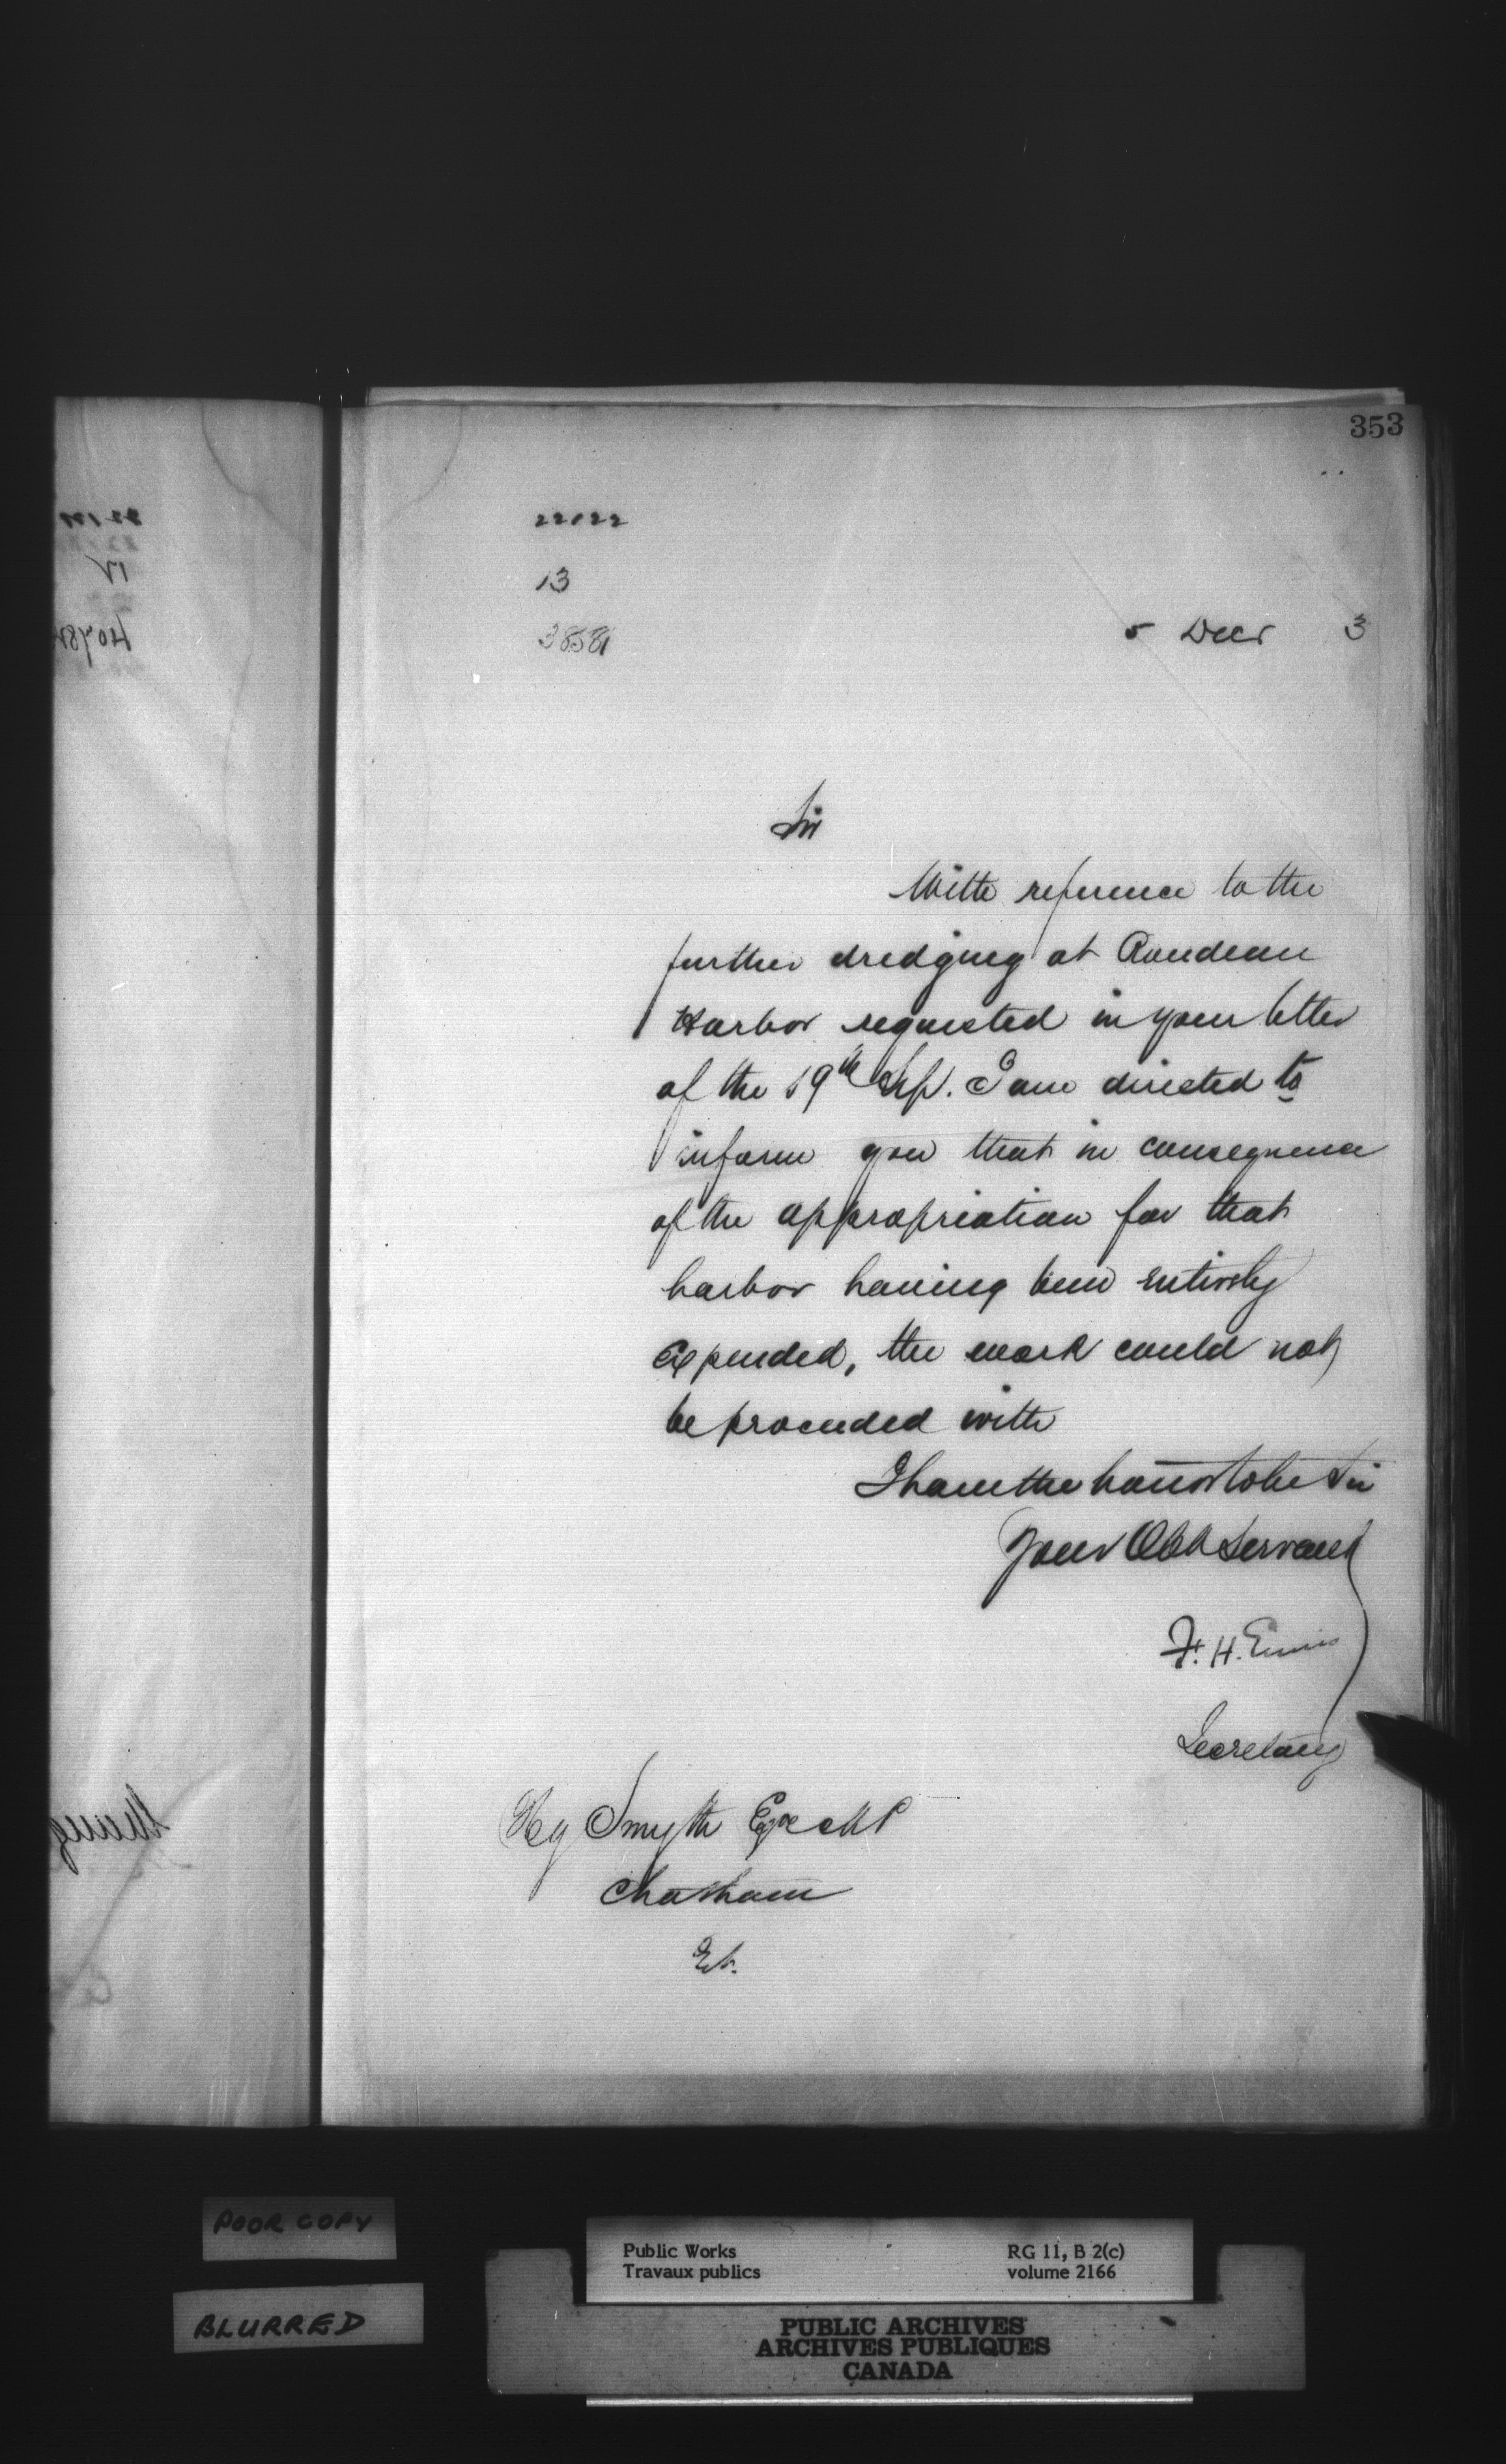 353
22122
13
38581
5 Decr 3
Sir
With reference to the
further dredging at Rondeau
Harbor requested in your letter
of the 19th Sep. I am directed to
inform you that in consequence
of the appropriation for that
harbor having been entirely
expended, the work could not
be proceeded with
I have the honor to be Sir
Your Obt Servant
F. H. Ennis
Secretary
Hy Smyth Esqre MP
Chatham
Et.
POOR COPY
BLURRED
Public Works
Travaux publics
RG 11, B 2(c)
volume 2166
PUBLIC ARCHIVES
ARCHIVES PUBLIQUES
CANADA